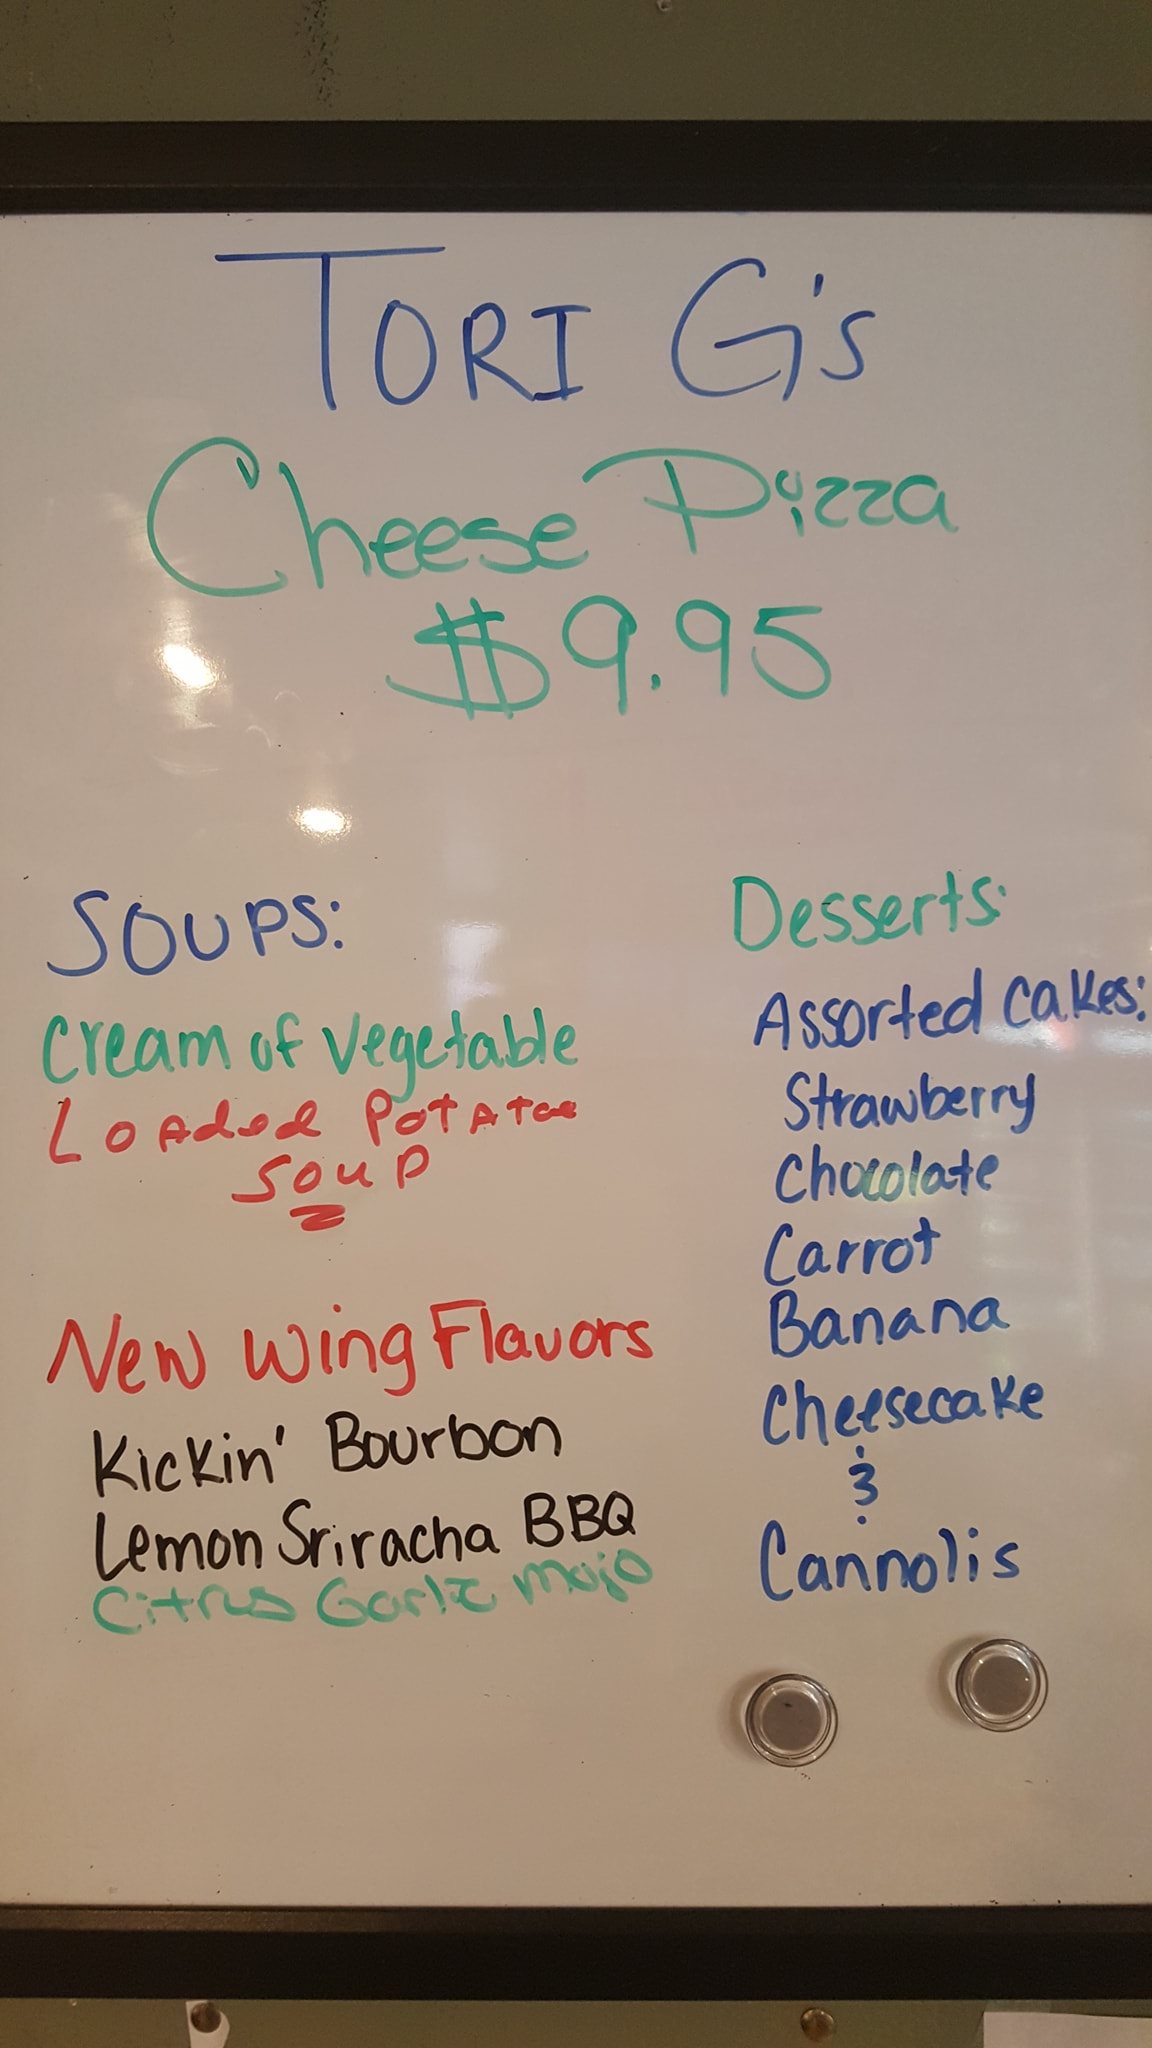 TORI G's
Cheese Pizza
$9.95
SOUPS:
Cream of Vegetable
Loaded Potatoe
SOUP
New Wing Flavors
Kickin' Bourbon
Lemon Sriracha BBQ
Citrus Garlic Mojo
Desserts:
Assorted Cakes:
Strawberry
Chocolate
Carrot
Banana
Cheesecake
&
Cannolis